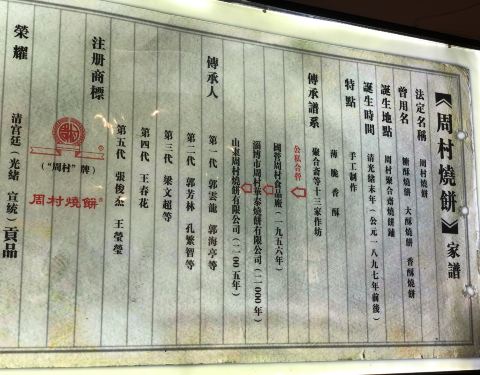 《周村燒餅》家譜
法定名稱 周村燒餅
曾用名 糖酥燒餅 大酥燒餅 香酥燒餅
誕生地點 周村聚合齋燒餅鋪
誕生時間 清光緒末年(公元一八九七年前後)
特點 手工制作
薄 脆 香 酥
傳承譜系 聚合斎等十三家作坊
公私合營
國營周村食品廠(一九五六年)
淄博市周村華泰燒餅有限公司(二000年)
山東周村燒餅有限公司(二00五年)
傳承人 第一代 郭雲龍 郭海亭等
第二代 郭芳林 孔繁智等
第三代 梁文超等
第四代 王春花
第五代 張俊杰 王瑩瑩
注册商標
(“周村”牌)
周村燒餅®
榮耀 清宮廷(光緒 宣統)貢品